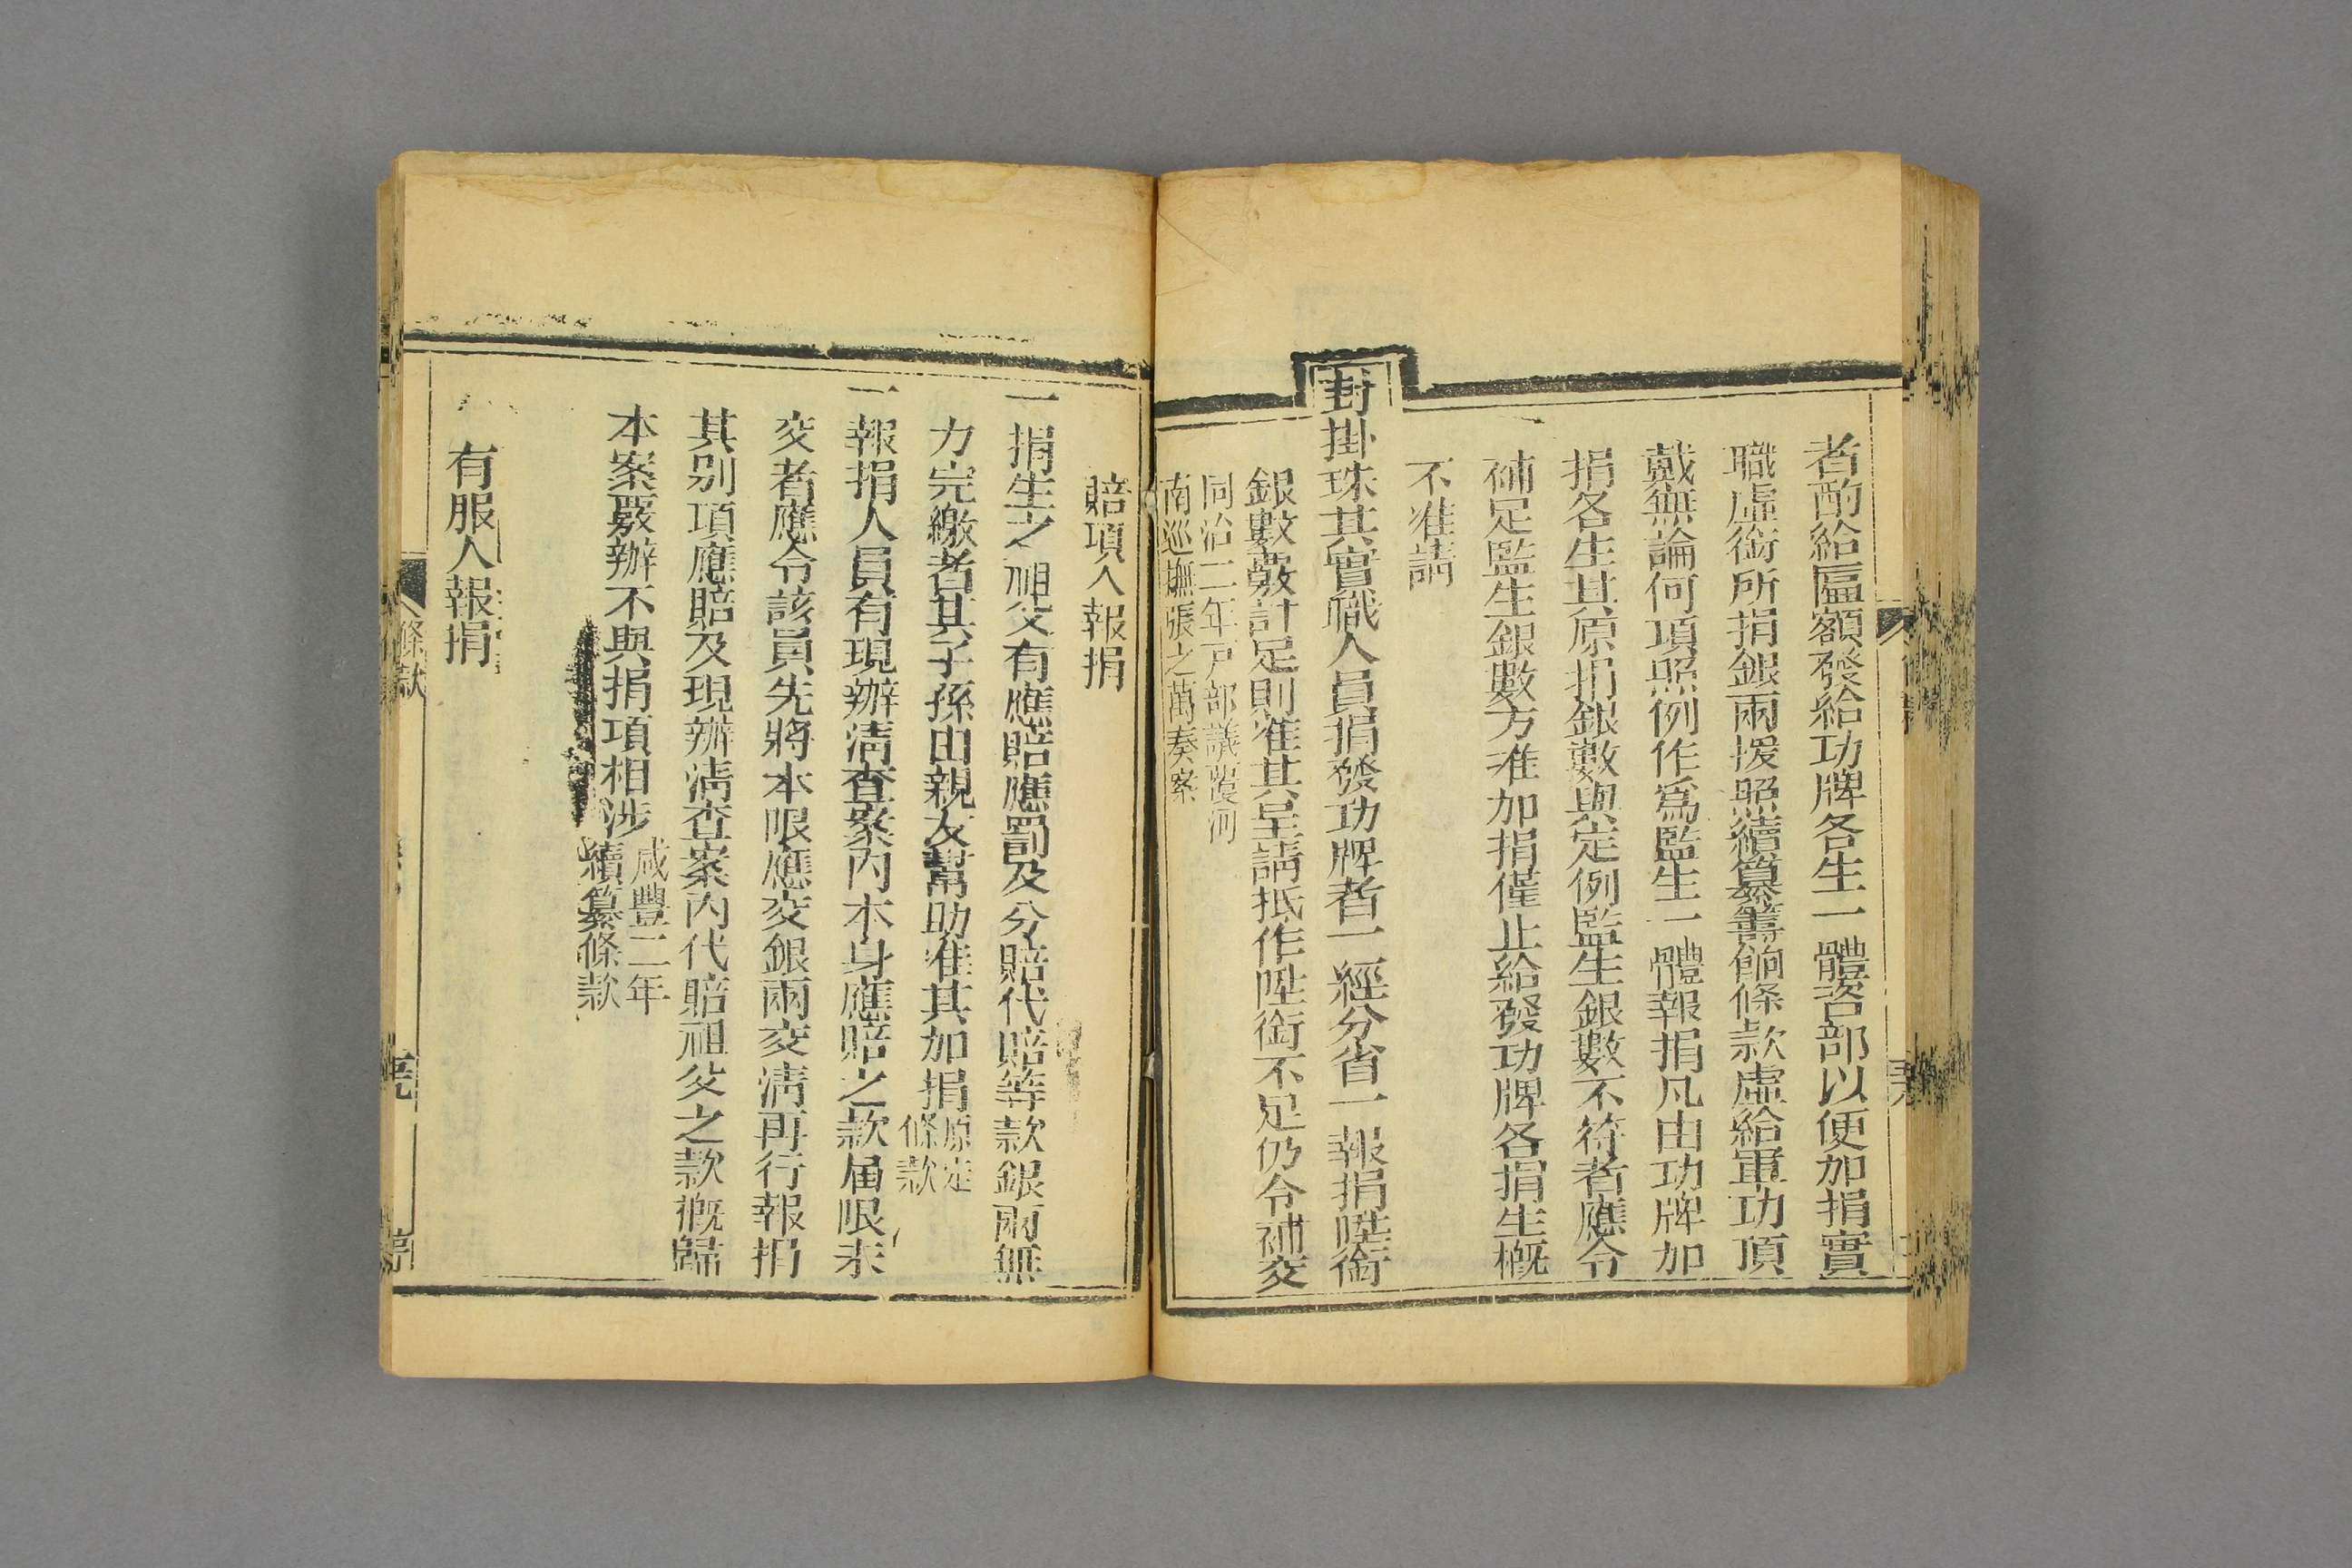 者酌給匾額發給功牌各生一體咨部以便加捐實
職虛銜所捐銀兩援照續纂籌餉條款虛給軍功頂
戴無論何項照例作爲監生一體報捐凡由功牌加
捐各生其原捐銀數與定例監生銀數不符者應令
補足監生銀數方准加捐僅止給發功牌各捐生概
不准請
封掛珠其實職人員捐發功牌者一經分省一報捐陞銜
銀數覈計足則准其呈請抵作陞銜不足仍令補交
同治二年戸部議覆河
南巡撫張之萬奏案
賠項人報捐
一捐生之祖父有應賠應罰及分賠代賠等款銀兩無
力完繳者其子孫由親友幫助准其加捐原定
條款
一報捐人員有現辦清查案內本身應賠之款屆限未
交者應令該員先將本限應交銀兩交清再行報捐
其別項應賠及現辦清查案內代賠祖父之款概歸
本案覈辦不與捐項相涉咸豐二年
續纂條款
有服人報捐
條款